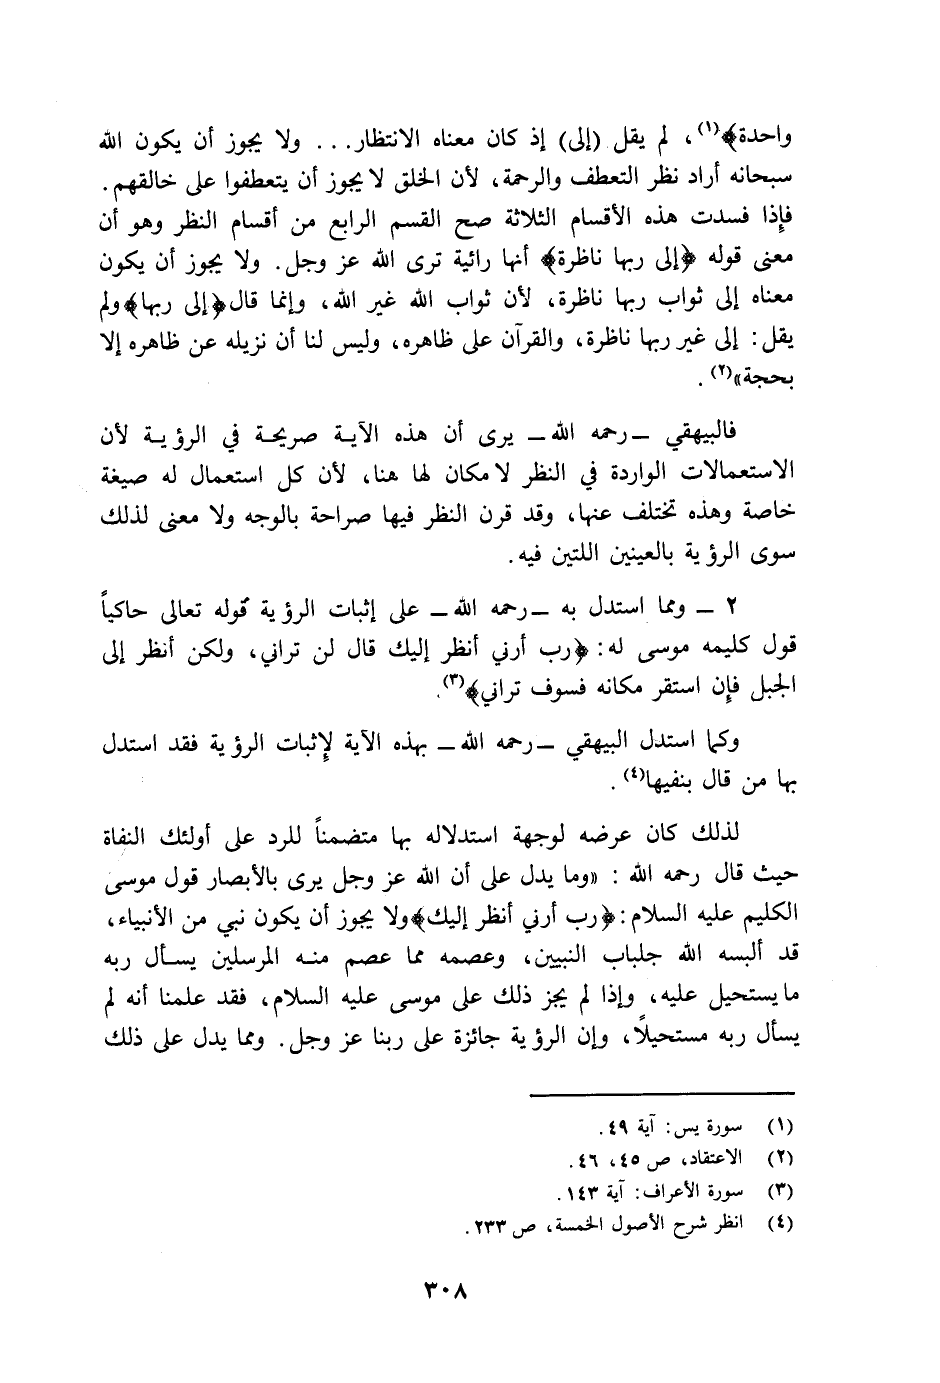 واحدة﴾(١)، لم يقل (إلى) إذ كان معناه الانتظار... ولا يجوز أن يكون الله
سبحانه أراد نظر التعطف والرحمة، لأن الخلق لا يجوز أن يتعطفوا على خالقهم.
فإذا فسدت هذه الأقسام الثلاثة صح القسم الرابع من أقسام النظر وهو أن
معنى قوله ﴿إلى ربها ناظرة﴾ أنها رائية ترى الله عز وجل. ولا يجوز أن يكون
معناه إلى ثواب ربها ناظرة، لأن ثواب الله غير الله، وإنما قال ﴿إلى ربها﴾ ولم
يقل: إلى غير ربها ناظرة، والقرآن على ظاهره، وليس لنا أن نزيله عن ظاهره إلا
بحجة»(٢).
فالبيهقي ــ رحمه الله ــ يرى أن هذه الآية صريحة في الرؤية لأن
الاستعمالات الواردة في النظر لا مكان لها هنا، لأن كل استعمال له صيغة
خاصة وهذه تختلف عنها، وقد قرن النظر فيها صراحة بالوجه ولا معنى لذلك
سوى الرؤية بالعينين اللتين فيه.
٢ ــ ومما استدل به ــ رحمه الله ــ على إثبات الرؤية قوله تعالى حاكياً
قول كليمه موسى له: ﴿رب أرني أنظر إليك قال لن تراني، ولكن أنظر إلى
الجبل فإن استقر مكانه فسوف تراني﴾(٣).
وكما استدل البيهقي ــ رحمه الله ــ بهذه الآية لإثبات الرؤية فقد استدل
بها من قال بنفيها(٤).
لذلك كان عرضه لوجهة استدلاله بها متضمناً للرد على أولئك النفاة
حيث قال رحمه الله : «وما يدل على أن الله عز وجل يرى بالأبصار قول موسى
الكليم عليه السلام: ﴿رب أرني أنظر إليك﴾ ولا يجوز أن يكون نبي من الأنبياء،
قد ألبسه الله جلباب النبيين، وعصمه مما عصم منه المرسلين يسأل ربه
ما يستحيل عليه، وإذا لم يجز ذلك على موسى عليه السلام، فقد علمنا أنه لم
يسأل ربه مستحيلاً، وإن الرؤية جائزة على ربنا عز وجل. ومما يدل على ذلك
(١) سورة يس: آية ٤٩.
(٢) الاعتقاد، ص ٤٥، ٤٦.
(٣) سورة الأعراف: آية ١٤٣.
(٤) انظر شرح الأصول الخمسة، ص ٢٣٣.
٣٠٨